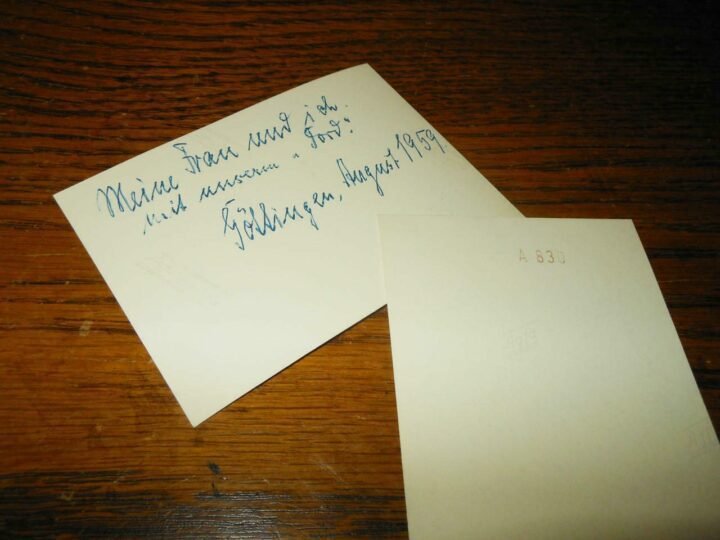 Meine Frau und ich
mit unserm „Ford“
Göttingen, August 1959.
A 830